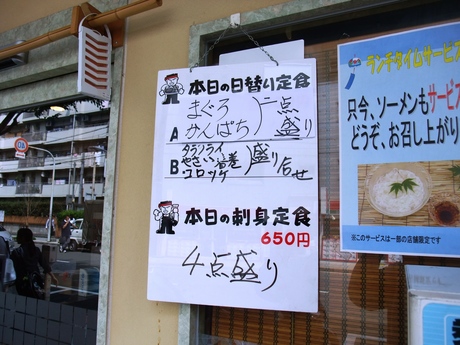 本日の日替り定食
まぐろ
A かんぱち 二点盛り
タラフライ
B やさい 盛り合せ
コロッケ
本日の刺身定食
650円
4点盛り
ランチタイムサービス
只今、ソーメンもサービス
どうぞ、お召し上がり
※このサービスは一部の店舗限定です